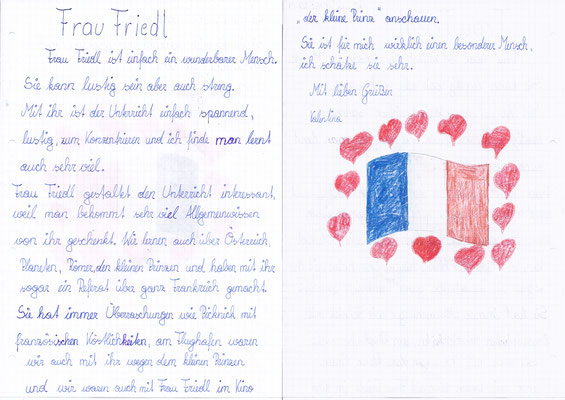 Frau Friedl
Frau Friedl ist einfach ein wunderbarer Mensch.
Sie kann lustig sein aber auch streng.
Mit ihr ist der Unterricht einfach spannend,
lustig, zum Konzentrieren und ich finde man lernt
auch sehr viel.
Frau Friedl gestaltet den Unterricht interessant,
weil man bekommt sehr viel Allgemeinwissen
von ihr geschenkt. Wir lernen auch über Österreich,
Planeten, Römer, den kleinen Prinzen und haben mit ihr
sogar ein Referat über ganz Frankreich gemacht.
Sie hat immer Überraschungen wie Picknick mit
französischen Köstlichkeiten, am Flughafen waren
wir auch mit ihr wegen dem kleinen Prinzen
und wir waren auch mit Frau Friedl im Kino
„der kleine Prinz" anschauen.
Sie ist für mich wirklich einen besonderer Mensch,
ich schätze sie sehr.
Mit lieben Grüßen
Valentina